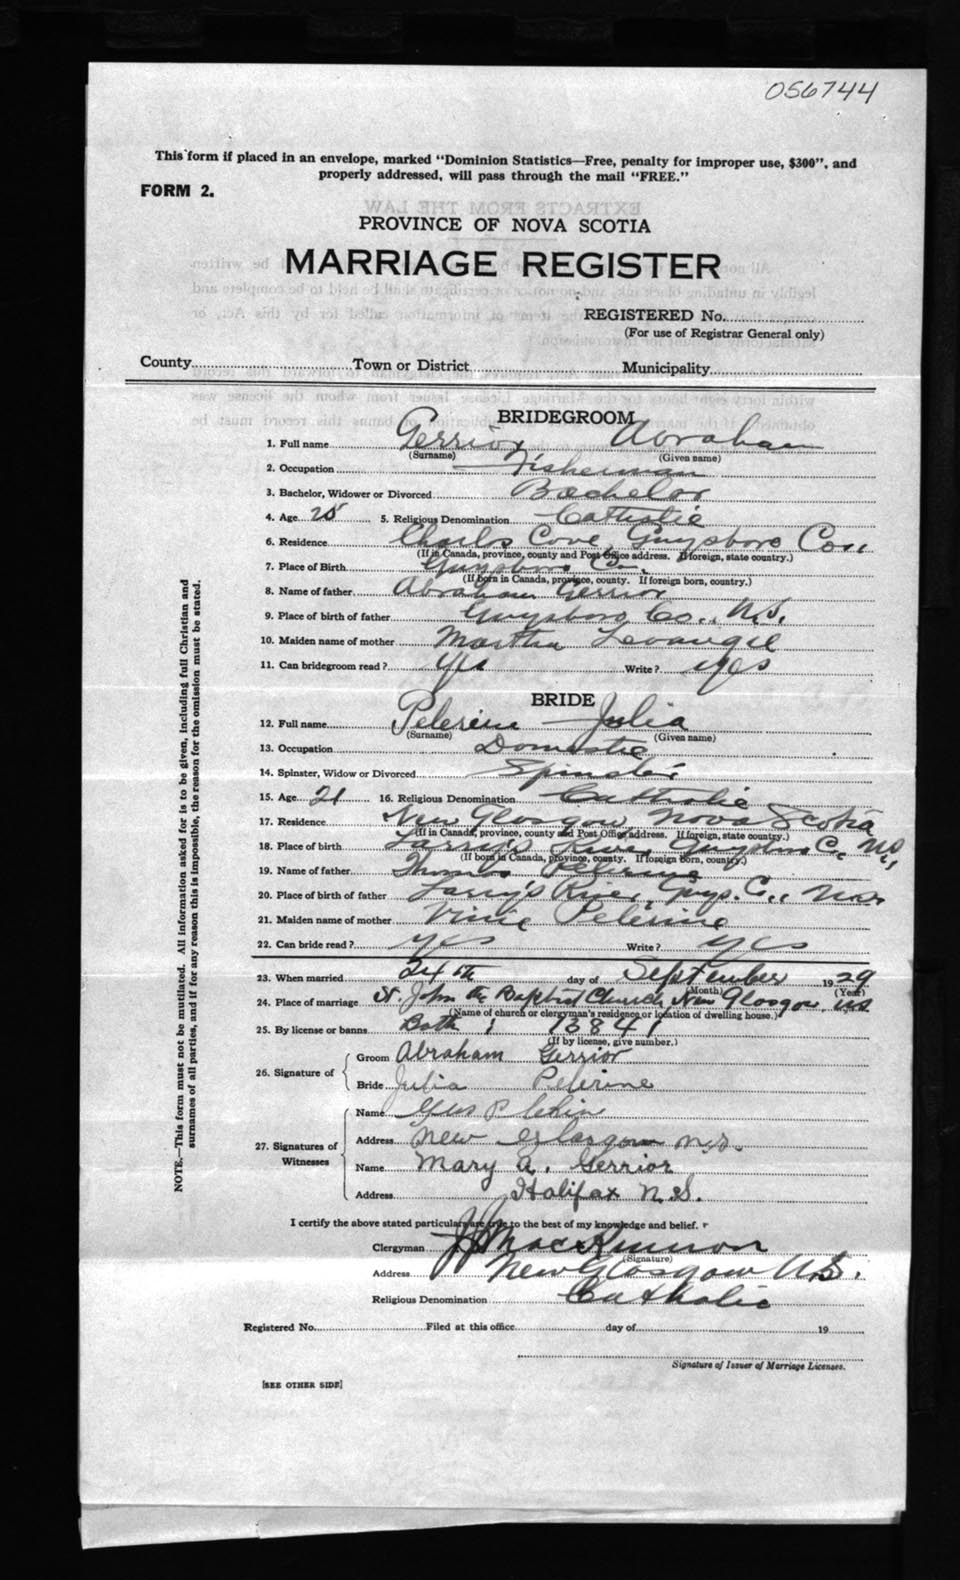 056744
This form if placed in an envelope, marked "Dominion Statistics—Free, penalty for improper use, $300", and
properly addressed, will pass through the mail "FREE."
FORM 2.
PROVINCE OF NOVA SCOTIA
MARRIAGE REGISTER
REGISTERED No.
(For use of Registrar General only)
County Town or District Municipality
BRIDEGROOM
1. Full name Gerrior Abraham
(Surname) (Given name)
2. Occupation Fisherman
3. Bachelor, Widower or Divorced Bachelor
4. Age 25 5. Religious Denomination Catholic
6. Residence Charlos Cove, Guysboro Co.,
(If in Canada, province, county and Post Office address. If foreign, state country.)
7. Place of Birth Guysboro Co.
(If born in Canada, province, county. If foreign born, country.)
8. Name of father Abraham Gerrior
9. Place of birth of father Guysboro Co., N.S.
10. Maiden name of mother Martha Levangie
11. Can bridegroom read? Yes Write? yes
BRIDE
12. Full name Pelerine Julia
(Surname) (Given name)
13. Occupation Domestic
14. Spinster, Widow or Divorced Spinster
15. Age 21 16. Religious Denomination Catholic
17. Residence New Glasgow Nova Scotia
(If in Canada, province, county and Post Office address. If foreign, state country.)
18. Place of birth Larry's River, Guysboro Co., N.S.,
(If born in Canada, province, county. If foreign born, country.)
19. Name of father Thomas Pelerine
20. Place of birth of father Larry's River, Guys. Co., N.S.
21. Maiden name of mother Vinie Pelerine
22. Can bride read? yes Write? yes
23. When married 24th day of September 1929
(Month) (Year)
24. Place of marriage St. John the Baptist Church, New Glasgow, N.S.
(Name of church or clergyman's residence or location of dwelling house.)
25. By license or banns Both ; 13841
(If by license, give number.)
26. Signature of
Groom Abraham Gerrior
Bride Julia Pelerine
27. Signatures of Witnesses
Name
Address New Glasgow N.S.
Name Mary A. Gerrior
Address Halifax N.S.
I certify the above stated particulars are true to the best of my knowledge and belief.
Clergyman MacKinnon
(Signature)
Address New Glasgow N.S.
Religious Denomination Catholic
Registered No. Filed at this office day of 19
Signature of Issuer of Marriage Licenses.
[SEE OTHER SIDE]
NOTE.—This form must not be mutilated. All information asked for is to be given, including full Christian and
surnames of all parties, and if for any reason this is impossible, the reason for the omission must be stated.